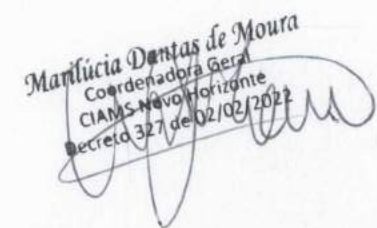 Marilúcia Dantas de Moura
Coordenadora Geral
CIAMS Novo Horizonte
Decreto 327 de 02/02/2022